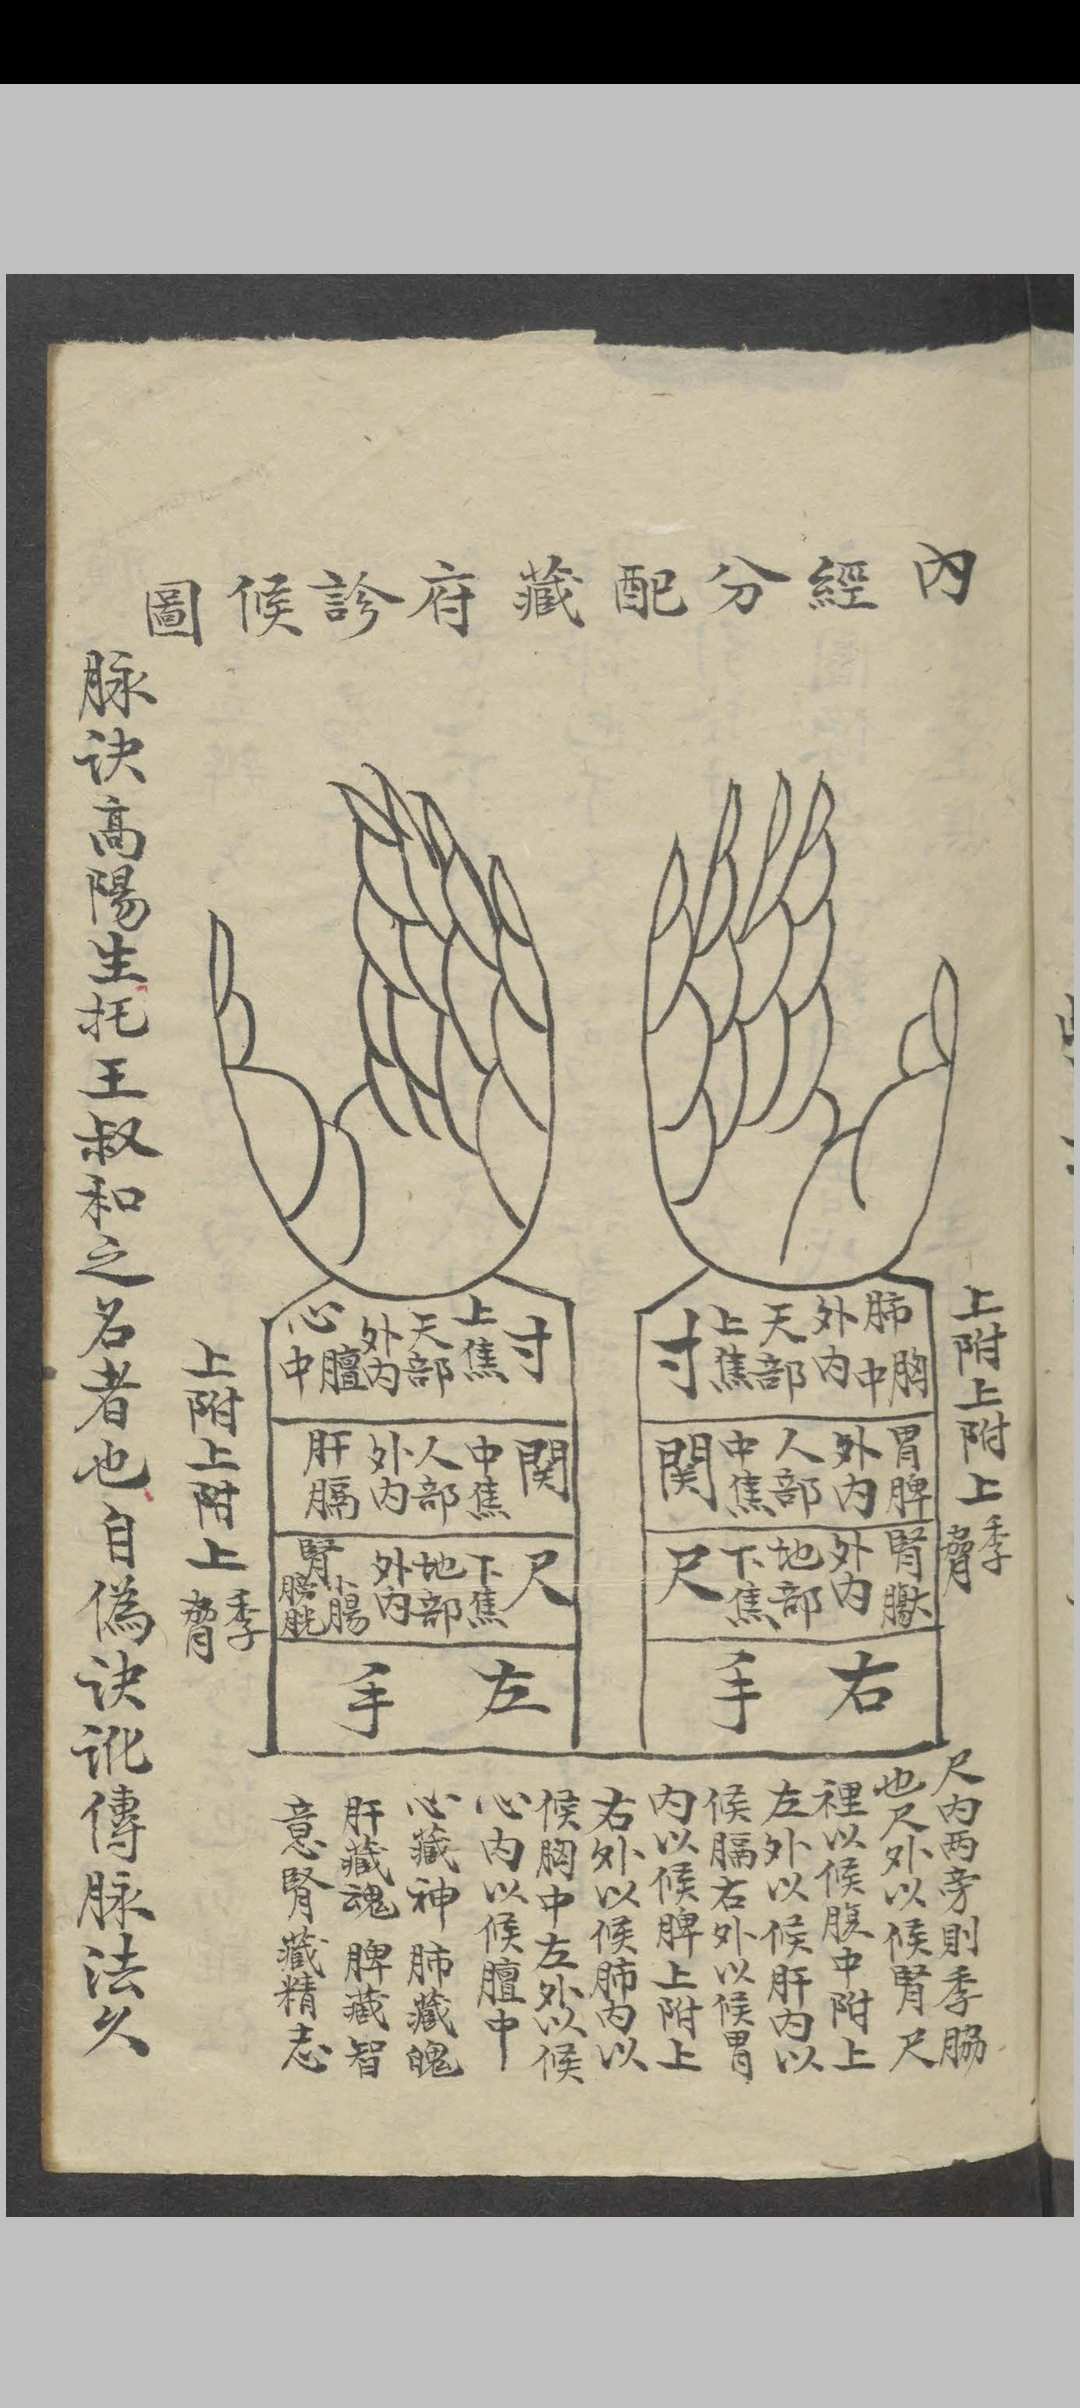 內經分配藏府診候圖
上附上附上季脅
肺胸中
外內
天部
上焦
寸
胃脾
外內
人部
中焦
関
腎
外內
地部
下焦
尺
右手
寸
上焦
天部
外內
心膻中
関
中焦
人部
外內
肝膈
尺
下焦
地部
外內
腎小腸膀胱
左手
上附上附上季脅
尺內两旁則季脇
也尺外以候腎尺
裡以候腹中附上
左外以候肝內以
候膈右外以候胃
內以候脾上附上
右外以候肺內以
候胸中左外以候
心內以候膻中
心藏神 肺藏魄
肝藏魂 脾藏智
意腎藏精志
脉诀高陽生托王叔和之名者也自偽诀訛傳脉法久